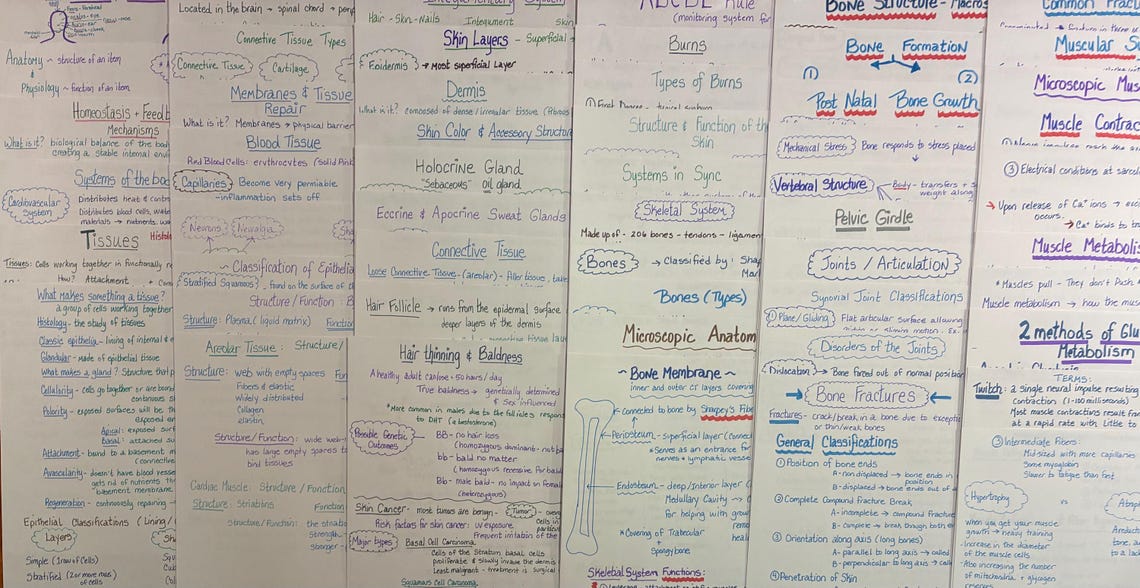 Anatomy → structure of an item
&
Physiology → function of an item
Homeostasis + Feedb
Mechanisms
What is it? biological balance of the body
creating a stable internal envi
Systems of the bod
Cardiovascular System
Distributes heat & contr
Distributes blood cells, wate
materials → nutrients, wa
Tissues Histolo
Tissues: Cells working together in functionally r
How? Attachment + Com
What makes something a tissue?
a group of cells working together
Histology - the study of tissues
Classic epithelia - lining of internal & e
Glandular - made of epithelial tissue
What makes a gland? Structure that p
Cellularity - cells go together or are bound
continuous s
Polarity - exposed surfaces will be th
exposed e
Apical: exposed surf
Basal: attached su
Attachment - bound to a basement m
(connective
Avascularity - doesn't have blood vesse
gets rid of nutrients th
basement membrane
Regeneration - continuously repairing
Epithelial Classifications (Lining /
Layers
Simple (1 row of cells)
Stratified (2 or more rows
of cells)
Located in the brain → spinal chord → perip
Connective Tissue Types
Connective Tissue
Cartilage
Membranes & Tissue
Repair
What is it? Membranes → physical barrier
Blood Tissue
Red Blood Cells: erythrocytes (Solid Pink
Capillaries Become very permiable
-inflammation sets off
Neurons
Neuralgia
~ Classification of Epithelia
Stratified Squamous, found on the surface of th
Structure / Function : B
Structure: Plasma (liquid matrix) Function
Areolar Tissue: Structure/
Structure: web with empty spaces Fun
Fibers & elastic
Widely distributed
Collagen
elastin
Structure/Function: wide web-
has large empty spaces to
bind tissues
Cardiac Muscle: Structure / Function
Structure: Striations Function
Structure/Function: the striatio
Strength-
stronger
Hair - Skin - Nails Integument Skin
Skin Layers - Superficial →
Epidermis → Most superficial Layer
Dermis
What is it? composed of dense/irregular tissue (fibrous
Skin Color & Accessory Structur
Holocrine Gland
"Sebaceous" oil gland
Eccrine & Apocrine Sweat Glands
Connective Tissue
Loose Connective Tissue - (areolar) - filler tissue, take
Hair Follicle → runs from the epidermal surface
deeper layers of the dermis
Hair thinning & Baldness
A healthy adult can lose + 50 hairs / day
True baldness → genetically determined
& sex influenced
*More common in males due to the follicle's respons
to DHT (a testosterone)
Possible Genetic Outcomes
BB - no hair loss
(homozygous dominant - not b
bb - bald no matter
(homozygous recessive for bald
Bb - male bald - no impact on female
(heterozygous)
Skin Cancer - most tumors are benign - Tumor - overg
cells in
Risk factors for skin cancer: UV exposure
Frequent irritation of the
Major types
Basal Cell Carcinoma
Cells of the Stratum basal cells
proliferate & slowly invade the dermis
Least malignant - treatment is surgical
Squamous Cell Carcinoma
ABCDE Rule
(monitoring system for
Burns
Types of Burns
Structure & Function of th
Skin
Systems in Sync
Skeletal System
Made up of - 206 bones - tendons - ligamen
Bones → Classified by: Shap
Mar
Bones (Types)
Microscopic Anatom
~ Bone Membrane ~
Inner and outer CT layers covering
→ Connected to bone by Sharpey's Fibe
→ Periosteum - superficial layer (connec
→ Serves as an entrance for
nerves & lymphatic vesse
Endosteum - deep/interior layer (
Medullary Cavity →
for helping with grow
* Covering of Trabecular
+
Spongy bone
Skelebtal System Functions:
Bone Structure - Macros
Bone Formation
(1) (2)
Post Natal Bone Growth
Mechanical Stress Bone responds to stress placed
Vertebral Structure Body - transfers + s
weight along
Pelvic Girdle
Joints / Articulation
Synovial Joint Classifications
① Plane/Gliding Flat articular surface allowing
Disorders of the Joints
Dislocation → Bone forced out of normal position
Bone Fractures
Fractures - crack/break in a bone due to exceptio
or thin/weak bones
General Classifications
① Position of bone ends
A - nondisplaced → bone ends in
position
B - displaced → bone ends out of
② Complete Compound Fracture Break
A - incomplete → compound fractur
B - complete → break through both e
③ Orientation along axis (long bones)
A - parallel to long axis → called
B - perpendicular to long axis → cal
④ Penetration of Skin
Common Fractu
Muscular S
Microscopic Mus
Muscle Contrac
③ Electrical conditions at sarcol
→ Upon release of Ca⁺ ions → exc
occurs.
→ Ca⁺ binds to tr
Muscle Metabolis
*Muscles pull - They don't Push
Muscle metabolism → how the musc
2 methods of Glu
Metabolism
TERMS:
Twitch: a single neural impulse resulting
contraction (1-100 milliseconds)
Most muscle contractions result from
at a rapid rate with little to
③ Intermediate Fibers:
Mid sized with more capillaries
Some myoglobin
Slower to fatigue than fast
Hypertrophy vs Atrop
when you get your muscle
growth → heavy training
-Increase in the diameter
of the muscle cells
-Also increasing the number
of mitochondria + glycogen